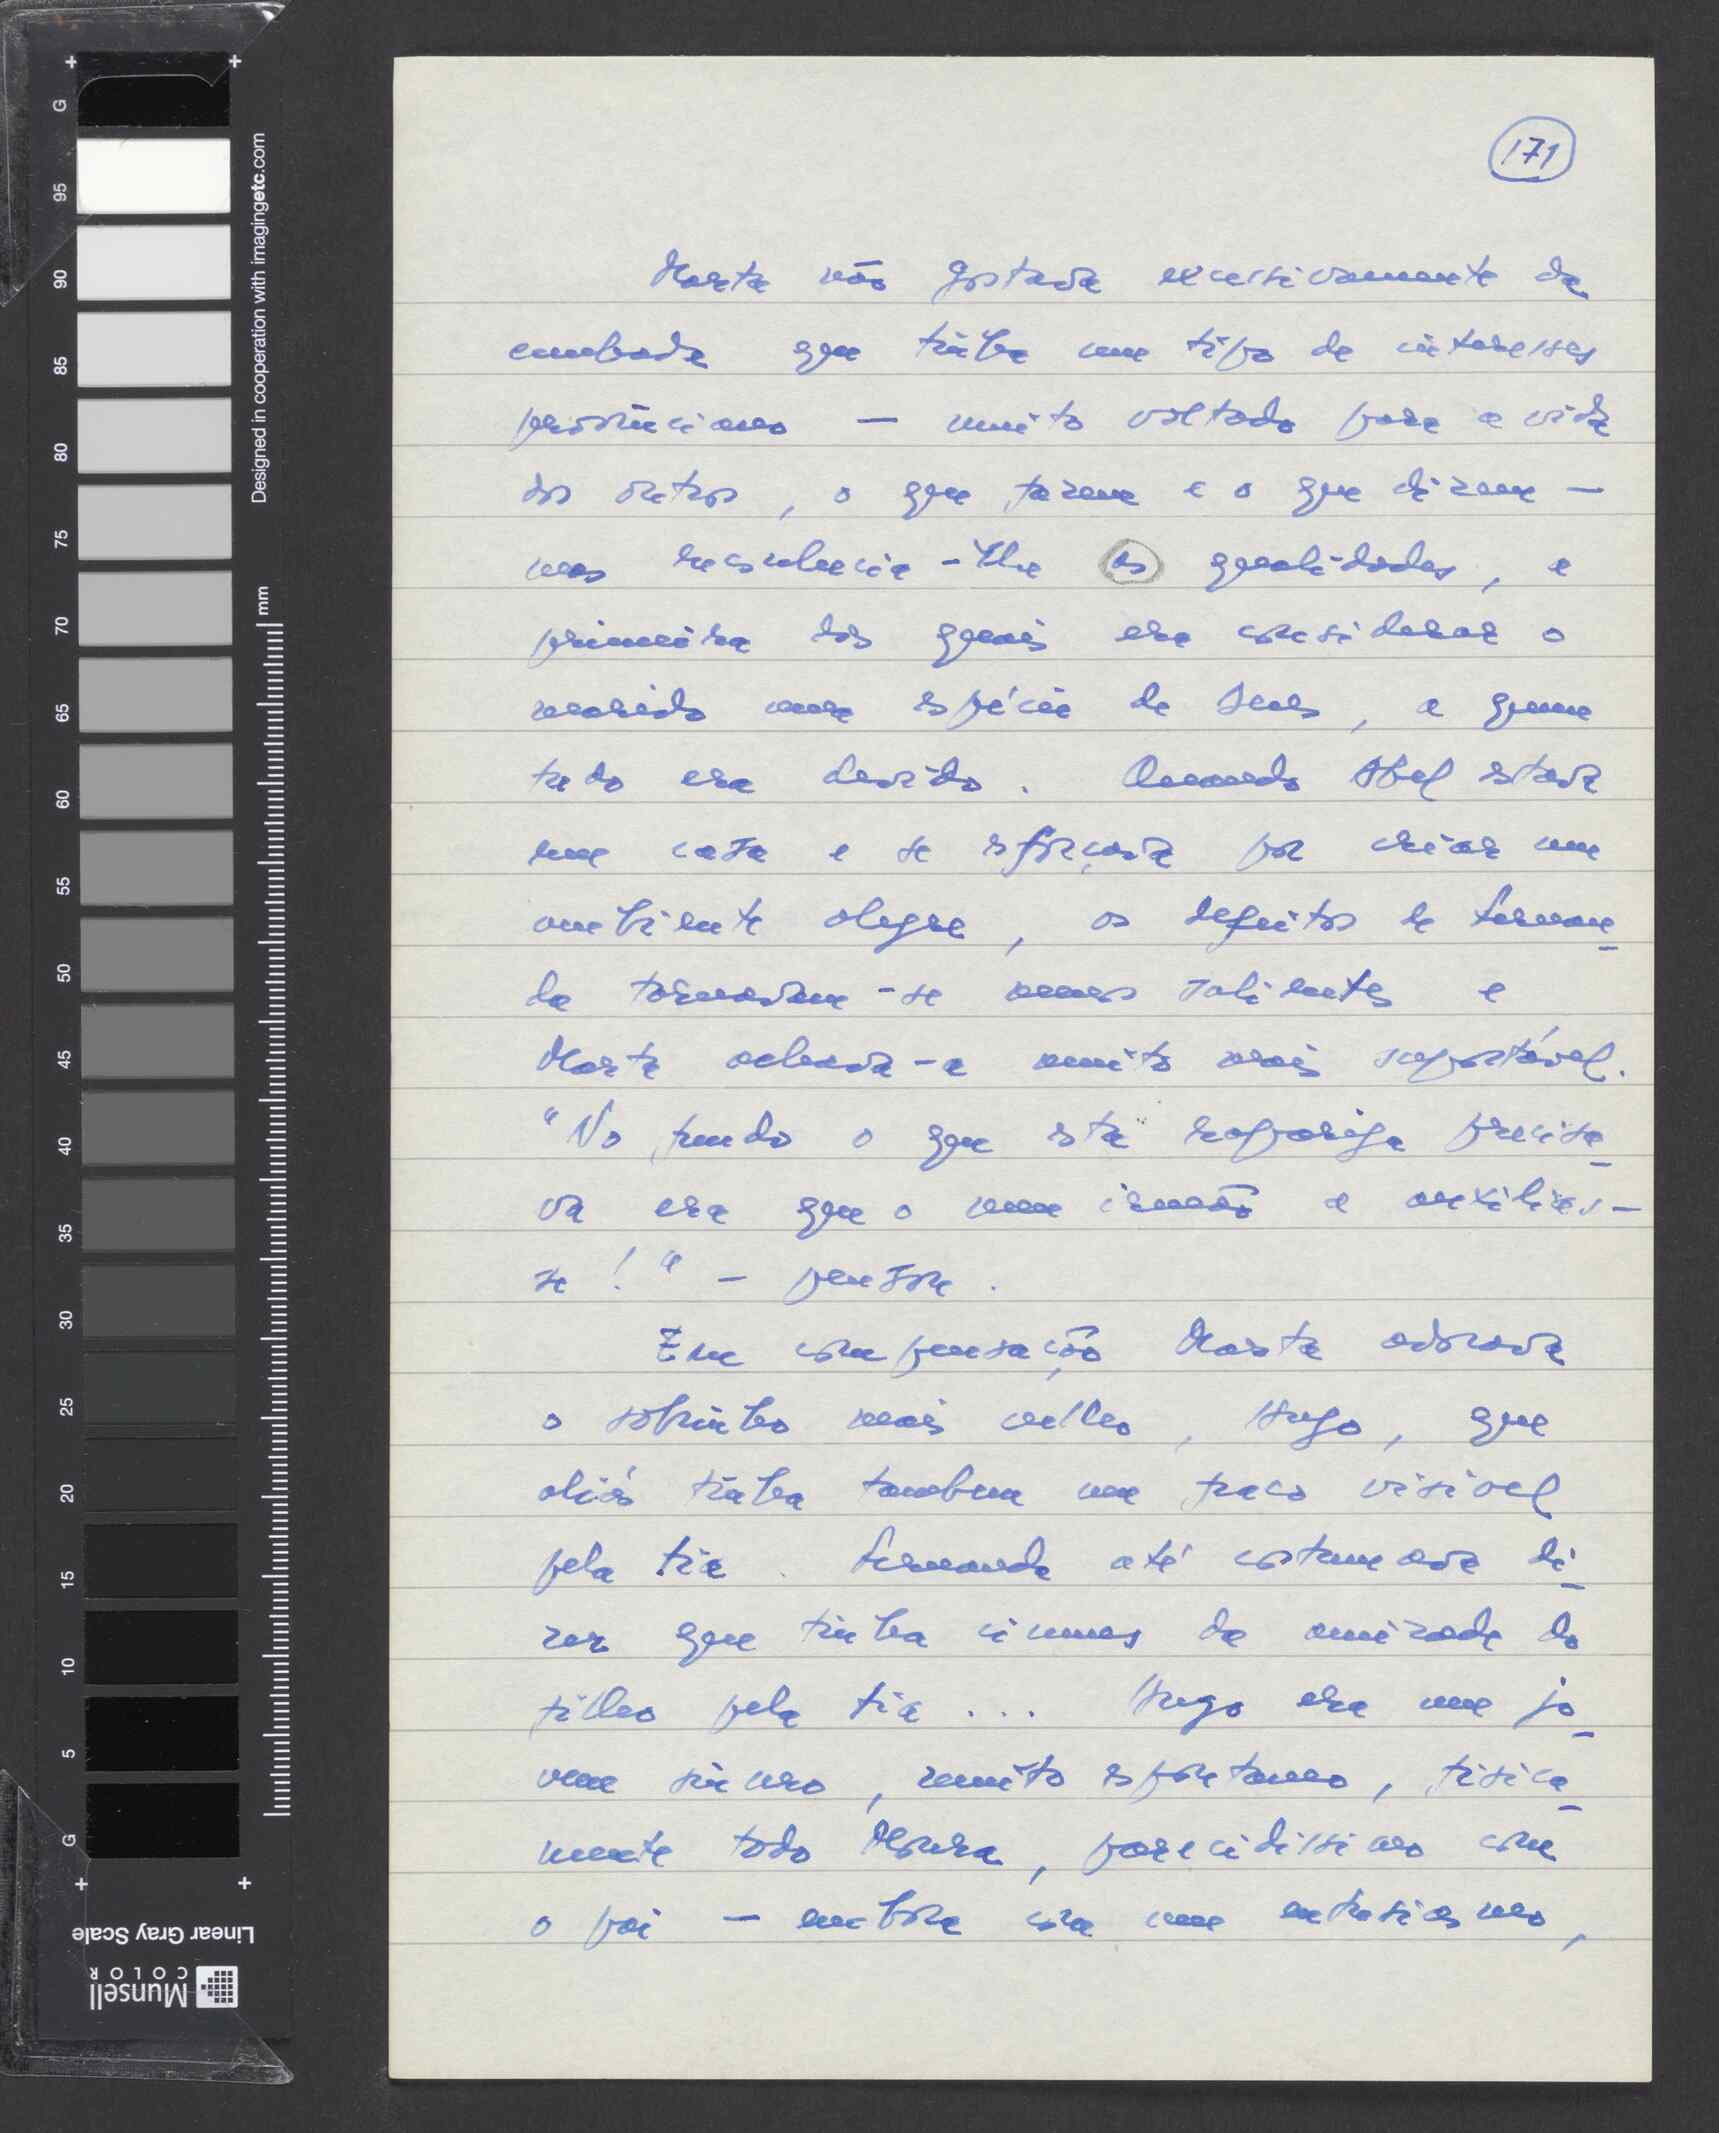 171
Marta não gostava excessivamente da
cunhada que tinha um tipo de interesses
provinciano — muito voltado para a vida
dos outros, o que fazem e o que dizem —
mas reconhecia-lhe as qualidades, e
primeira das quais era considerar o
marido uma espécie de Deus, a quem
tudo era devido. Quando Abel estava
em casa e se esforçava por criar um
ambiente alegre, os defeitos de Fernan-
da tornavam-se menos salientes e
Marta achava-a muito mais suportável.
"No fundo o que esta rapariga precisa-
va era que o meu irmão a auxilias-
se!" — pensou.
Em compensação Marta adorava
o sobrinho mais velho, Hugo, que
aliás tinha tambem um fraco visivel
pela tia. Fernanda até costumava di-
zer que tinha ciumes da amizade do
filho pela tia... Hugo era um jo-
vem sincero, muito espontaneo, fisica-
mente todo Moura, parecidissimo com
o pai — embora com um entusiasmo,
G
95
90
85
80
75
70
65
60
55
50
45
40
35
30
25
20
15
10
5
G
Designed in cooperation with imagingetc.com
mm
Linear Gray Scale
Munsell
COLOR